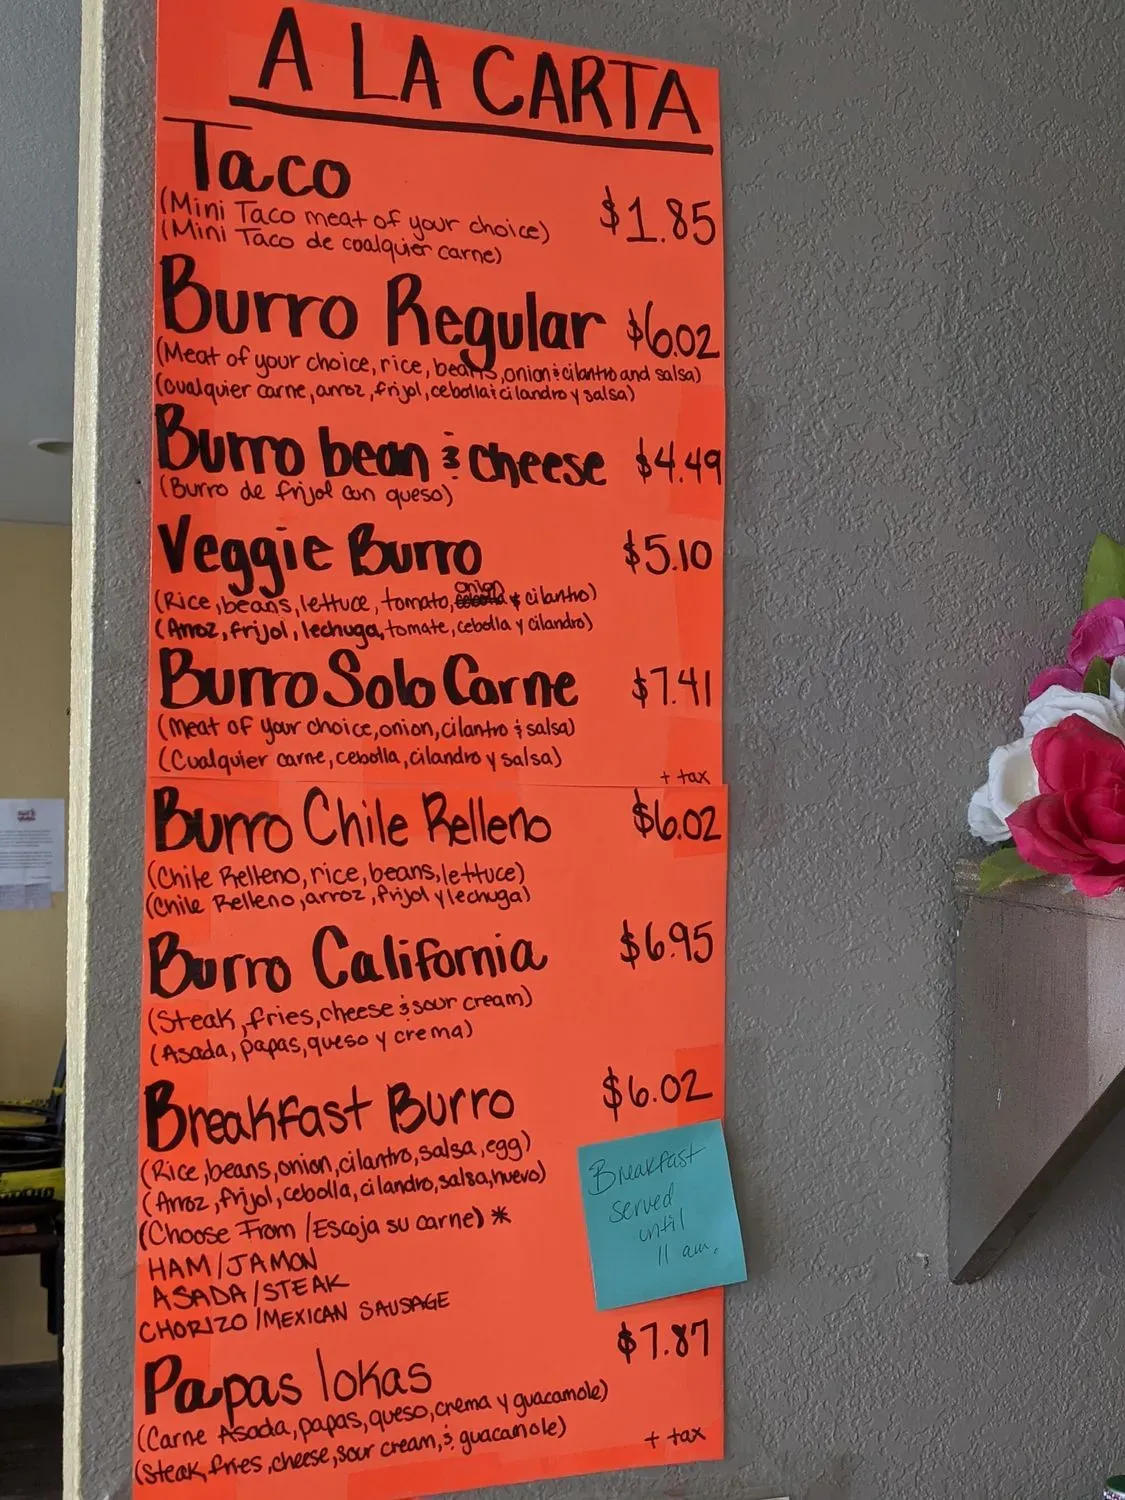 A LA CARTA
Taco
$1.85
(Mini Taco meat of your choice)
(Mini Taco de coalquier carne)
Burro Regular $6.02
(Meat of your choice, rice, beans, onion & cilantro and salsa)
(Cualquier carne, arroz, frijol, cebolla & cilandro y salsa)
Burro bean & cheese $4.49
(Burro de frijol con queso)
Veggie Burro $5.10
(Rice, beans, lettuce, tomato, onion & cilantro)
(Arroz, frijol, lechuga, tomate, cebolla y cilandro)
Burro Solo Carne $7.41
(Meat of your choice, onion, cilantro & salsa)
(Cualquier carne, cebolla, cilandro y salsa)
+ tax
Burro Chile Relleno $6.02
(Chile Relleno, rice, beans, lettuce)
(Chile Relleno, arroz, frijol y lechuga)
Burro California $6.95
(Steak, fries, cheese & sour cream)
(Asada, papas, queso y crema)
Breakfast Burro $6.02
(Rice, beans, onion, cilantro, salsa, egg)
(Arroz, frijol, cebolla, cilandro, salsa, huevo)
(Choose From / Escoja su carne) *
HAM / JAMON
ASADA / STEAK
CHORIZO / MEXICAN SAUSAGE
Breakfast
served
until
11 am.
Papas lokas $7.87
(Carne Asada, papas, queso, crema y guacamole)
(Steak, fries, cheese, sour cream, & guacamole)
+ tax